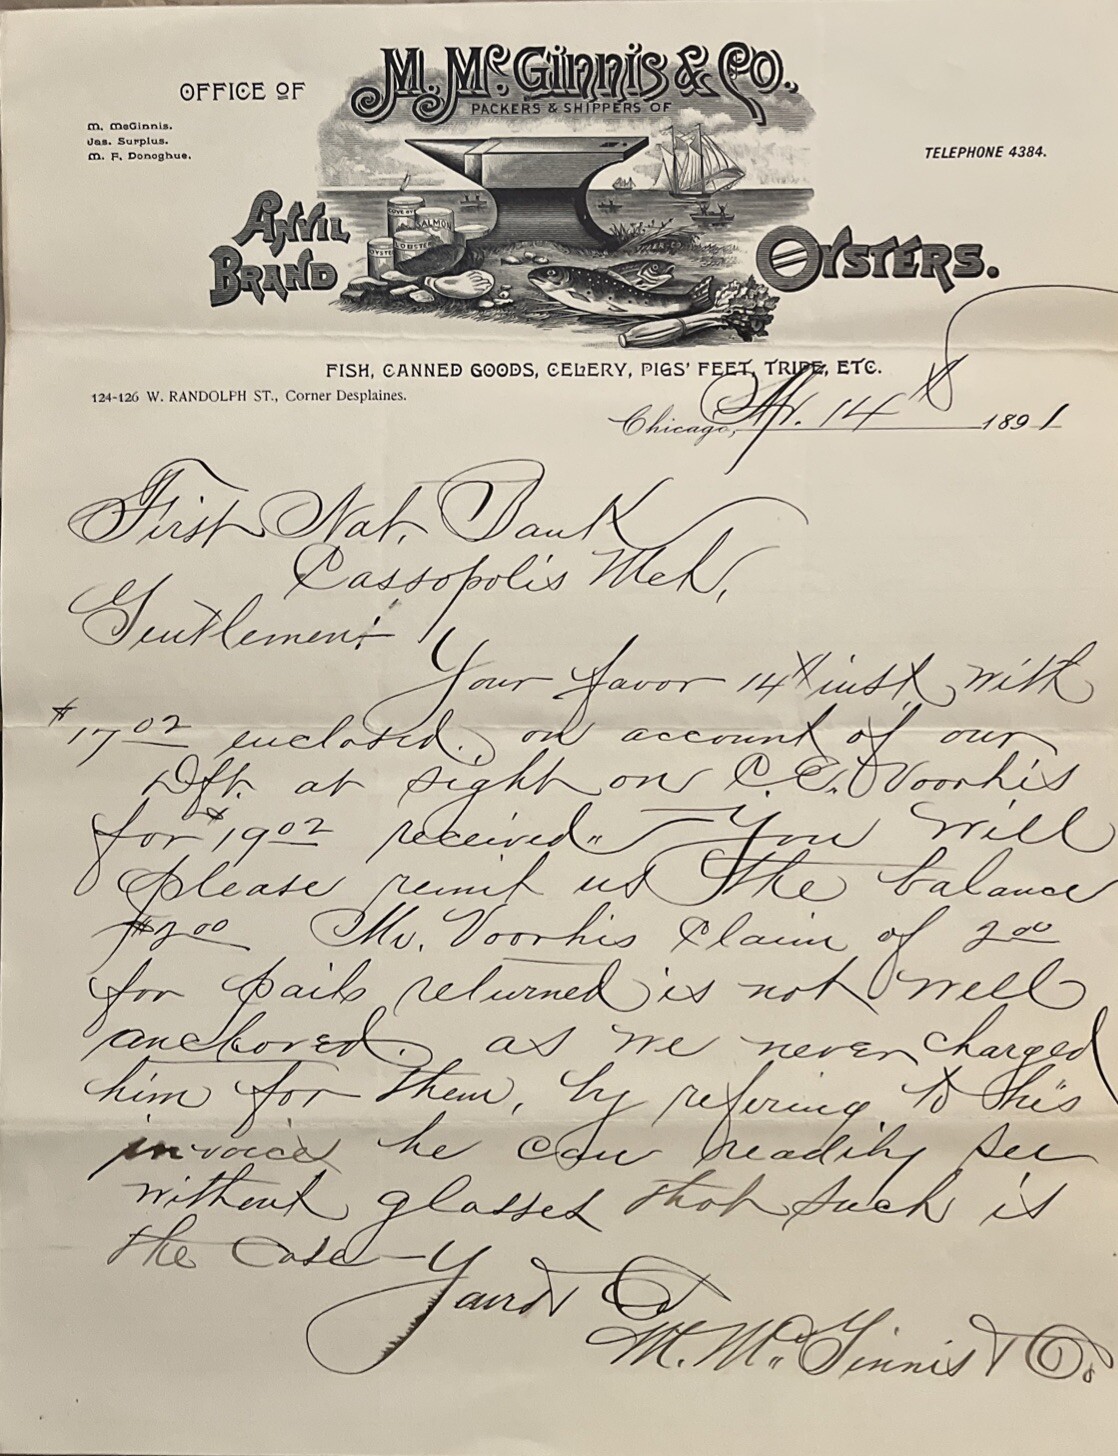 OFFICE OF
M. McGinnis & Co.
PACKERS & SHIPPERS OF
M. McGinnis.
Jas. Surplus.
M. F. Donoghue.
TELEPHONE 4384.
COVE OY
SALMON
LOBSTER
OYSTE
ANVIL BRAND OYSTERS.
FISH, CANNED GOODS, CELERY, PIGS' FEET, TRIPE, ETC.
124-126 W. RANDOLPH ST., Corner Desplaines.
Chicago, 14 1891
First Nat. Bank
Cassopolis Mch,
Gentlemen:
Your favor 14th inst with
$17 02 enclosed. on account of our
Dft. at sight on C. C. Voorhis
for $19 02 received. You will
please remit us the balance
$2 00 Mr. Voorhis claim of 2 00
for pails returned is not well
anchored. as we never charged
him for them, by refering to his
invoice he can readily see
without glasses that such is
the case - Yours &
M. McGinnis & Co.